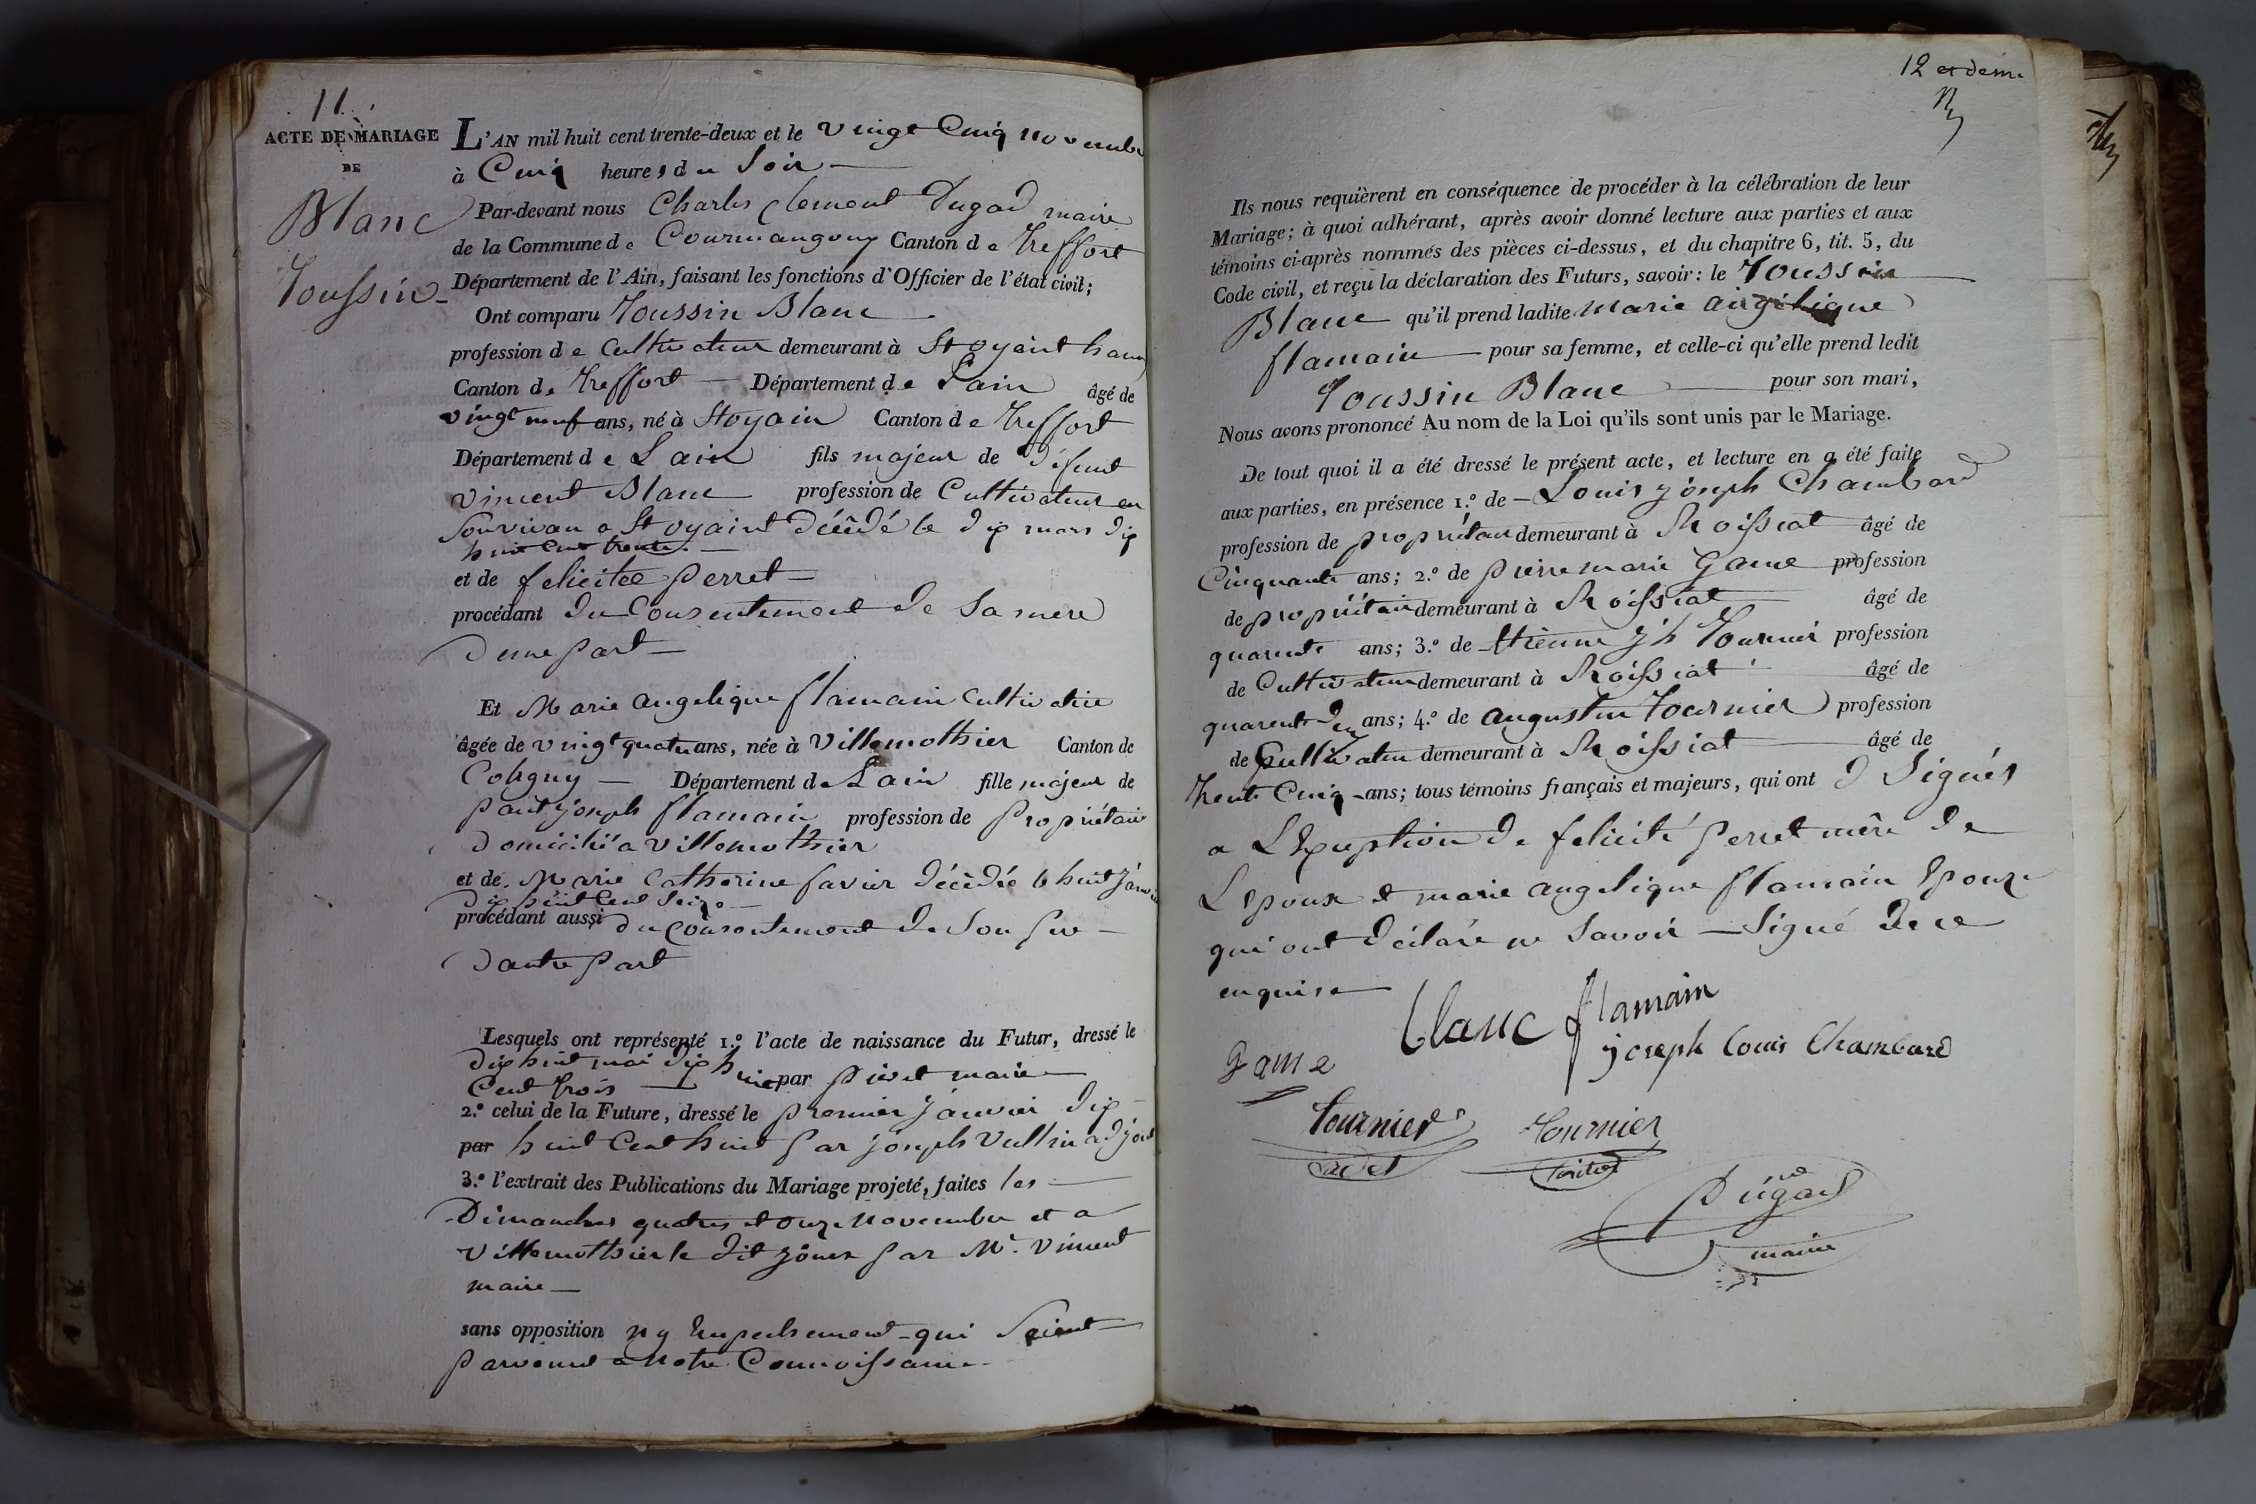 11.
ACTE DE MARIAGE
DE
Blanc
Toussin
L'AN mil huit cent trente-deux et le vingt Cinq novembre
à Cinq heures du Soir
Par-devant nous Charles Clement Dugad maire
de la Commune de Courmangoux Canton de Treffort
Département de l'Ain, faisant les fonctions d'Officier de l'état civil;
Ont comparu Toussin Blanc
profession de Cultivateur demeurant à St oyaint
Canton de Treffort Département de Lain âgé de
vingt neuf ans, né à St oyain Canton de Treffort
Département de Lain fils majeur de défunt
vincent Blanc profession de Cultivateur en
Son vivan a St oyaint décédé le dix mars dix
huit cent trente.
et de felicitee Perret
procédant du Consentement de Sa mere
Dune Part
Et Marie angelique flamain Cultivatrice
âgée de vingt quatre ans, née à Villemothier Canton de
Coligny Département de Lain fille majeur de
joseph flamain profession de Propriétaire
Domicilié a Villemothier
et de Marie Catherine favier décèdée le huit janvier
dix huit Cent Seize
procédant aussi du Consentement de Son Pere
Dautre Part
Lesquels ont représenté 1.º l'acte de naissance du Futur, dressé le
dix huit mai dix huit par Pivet maire
Cent trois
2.º celui de la Future, dressé le premier janvier dix
par huit Cent huit Par joseph Vullin adjoint
3.º l'extrait des Publications du Mariage projeté, faites les
Dimanches quatres et onze Novembre et a
Villemothier le dit jours Par Mr. Vincent
maire
sans opposition ny Empechement qui Soient
Parvenus a Notre Connoissance
12 et dern.
Ils nous requièrent en conséquence de procéder à la célébration de leur
Mariage; à quoi adhérant, après avoir donné lecture aux parties et aux
témoins ci-après nommés des pièces ci-dessus, et du chapitre 6, tit. 5, du
Code civil, et reçu la déclaration des Futurs, savoir: le Toussin
Blanc qu'il prend ladite Marie angélique
flamain pour sa femme, et celle-ci qu'elle prend ledit
Toussin Blanc pour son mari,
Nous avons prononcé Au nom de la Loi qu'ils sont unis par le Mariage.
De tout quoi il a été dressé le présent acte, et lecture en a été faite
aux parties, en présence 1.º de Louis joseph Chambard
profession de propriétaire demeurant à Roissiat âgé de
Cinquante ans; 2.º de pierre marie Game profession
de propriétaire demeurant à Roissiat âgé de
quarente ans; 3.º de Etienne jh Tournier profession
de Cultivateur demeurant à Roissiat âgé de
quarente deux ans; 4.º de augustin Tournier profession
de Cultivateur demeurant à Roissiat âgé de
Trente Cinq ans; tous témoins français et majeurs, qui ont Signés
a LExeption de felicité Perret mère de
Lepoux et marie angelique flamain Epouze
qui ont déclaré ne Savoir Signé de ce
enquise
blanc flamain
Game joseph Louis Chambard
tournier tournier
Dugad
maire